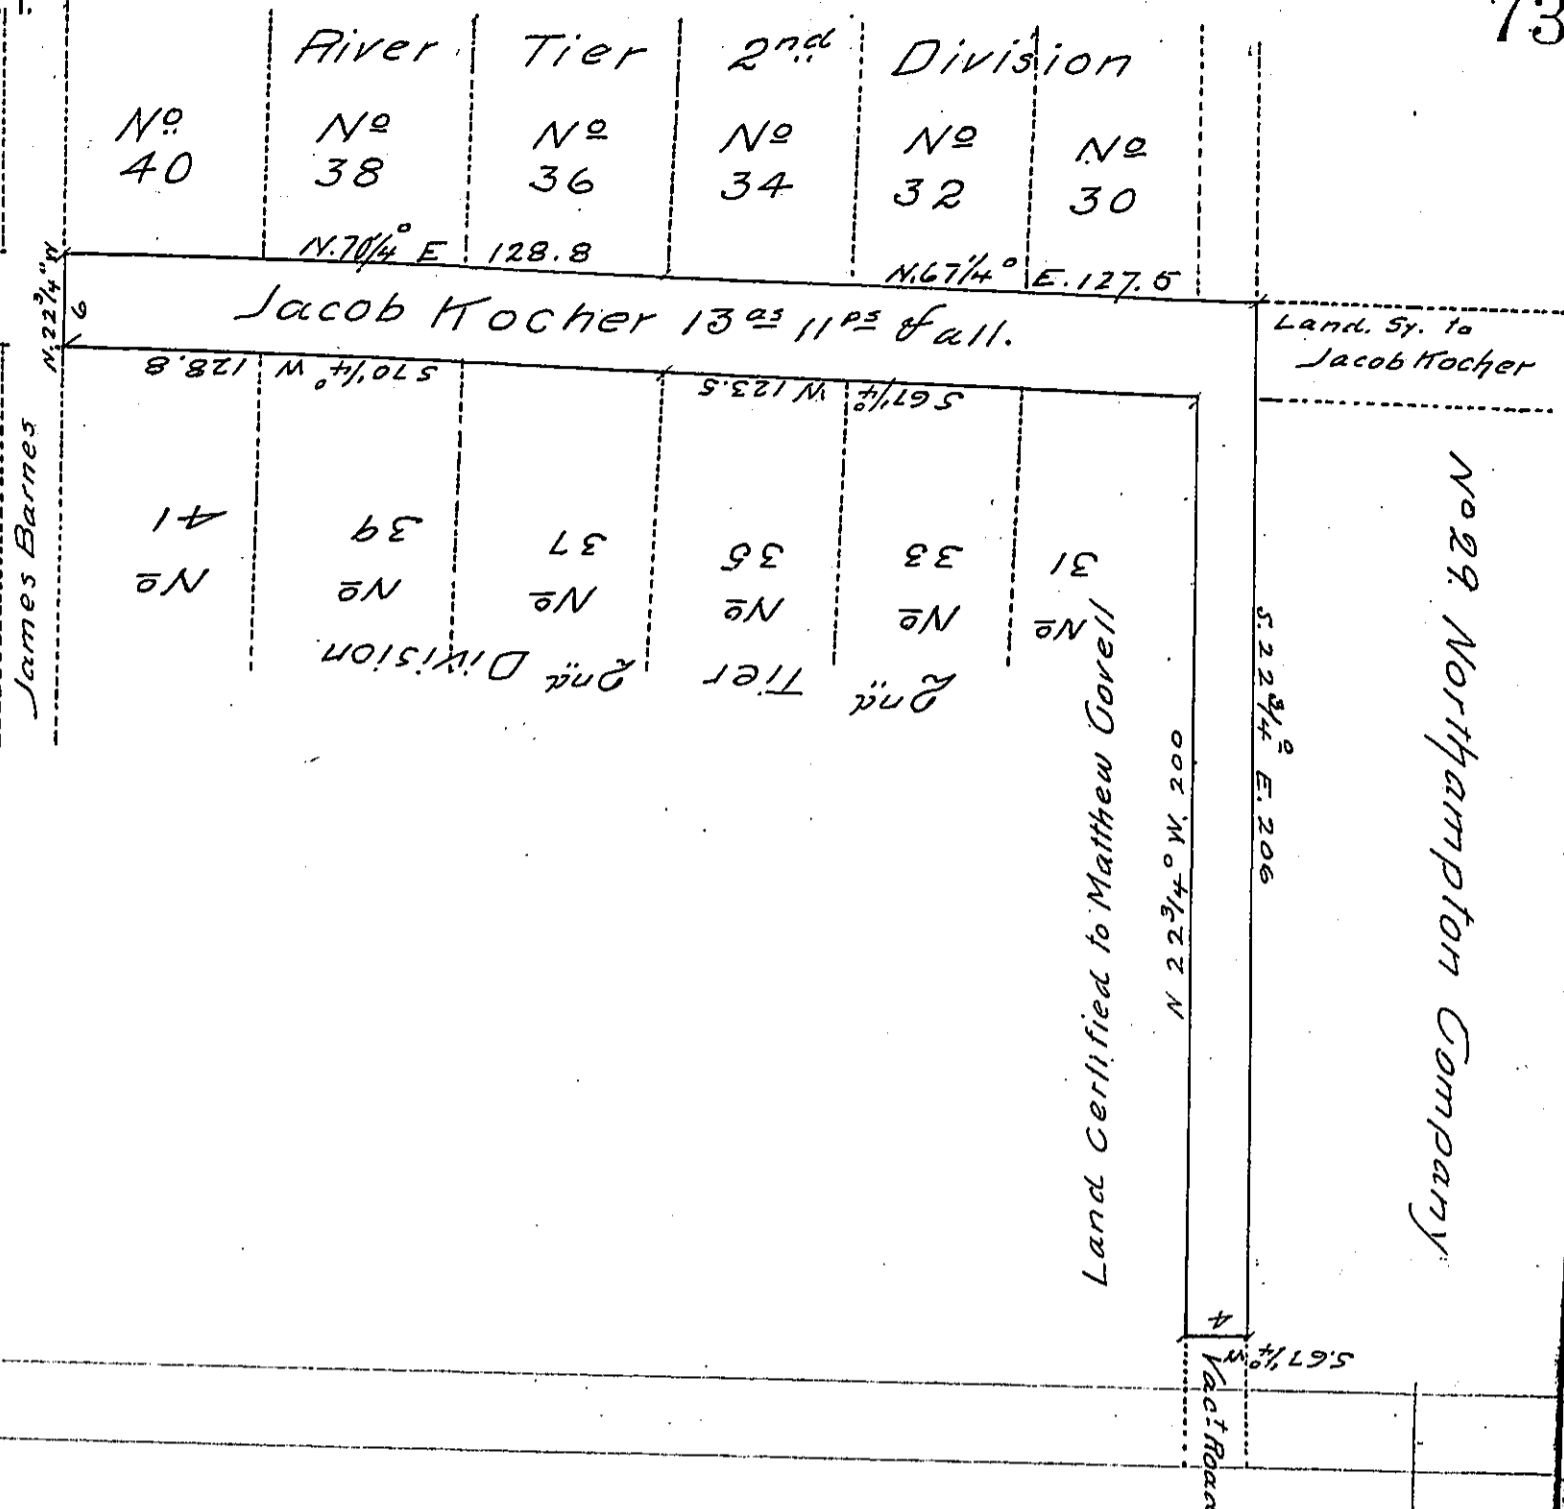 73
River Tier 2nd Division
No 40
No 38
No 36
No 34
No 32
No 30
N.70 1/4° E 128.8
N.67 1/4° E. 127.5
N. 22 3/4° W
6
Jacob Kocher 13 as 11 ps & all.
Land. Sy. to
Jacob Kocher
S 70 1/4° W 128.8
S 67 1/4° W 123.5
James Barnes
No 41
No 39
No 37
No 35
No 33
No 31
2nd Tier 2nd Division
Land Certified to Matthew Covell
N 22 3/4° W. 200
S. 22 3/4° E. 206
No 29 Northampton Company
4
S.67 1/4° W
Vact. Road